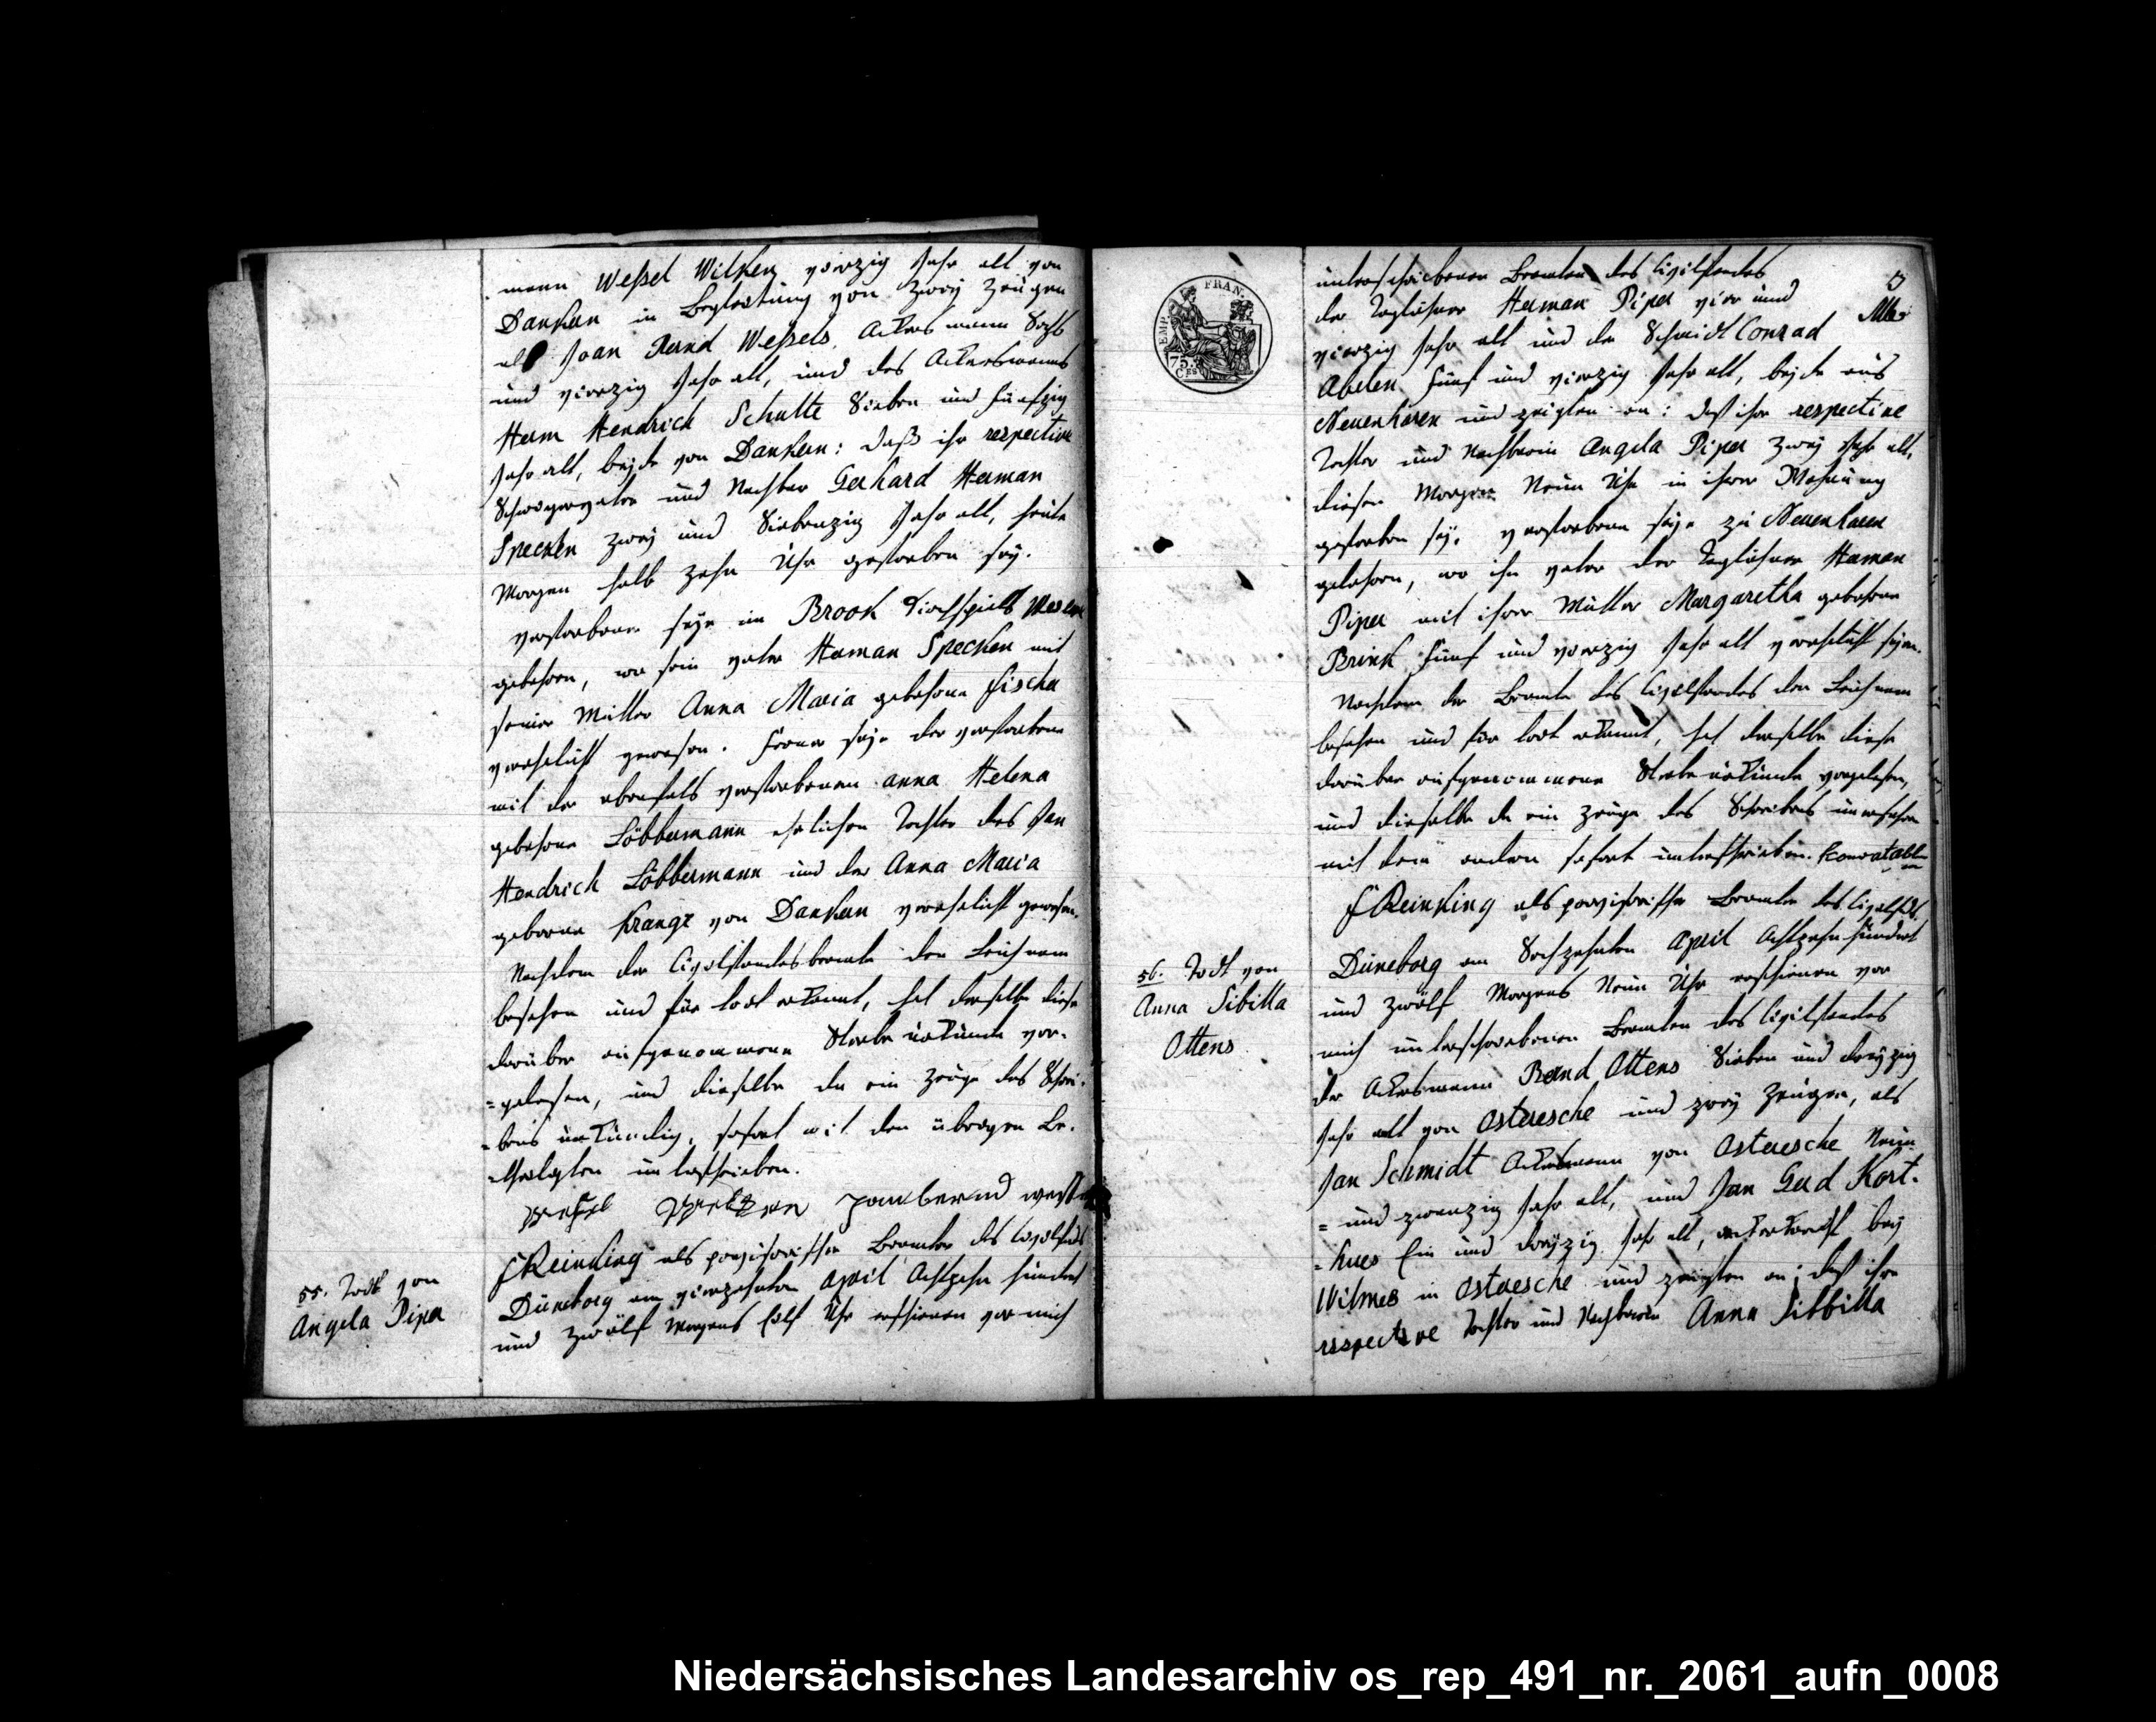 mann Weßel Wilken vierzig Jahr alt von
Dankern in Begleitung von zwey Zeugen
als Joan Bernd Weßels, Ackersmann Sechs
und vierzig Jahr alt, und des Ackersmanns
Herm Hendrich Schulte Sieben und fünfzig
Jahr alt, beyde von Dankern: daß ihr respective
Schwiegervater und Nachbar Gerhard Herman
Specken zwey und Siebenzig Jahr alt, heute
Morgen halb zehn Uhr gestorben sey.
Verstorbener seye im Brook Kirchspiels
gebohren, wo sein Vater Herman Specken mit
seiner Mutter Anna Maria gebohrne Fischer
verehlicht gewesen. Ferner seye der verstorbene
mit der ebenfals verstorbenen Anna Helena
gebohrne Löbbermann ehelichen Tochter des Jan
Hendrich Löbbermann und der Anna Maria
geborne Krange von Dankern verehelicht gewesen.
Nachdem der Civilstandesbeamte den Leichnam
besehen und für todt erkannt, hat derselbe diese
darüber aufgenommene Sterbeurkunde vor-
=gelesen, und dieselbe da ein Zeuge des Schrei-
=bens unkündig, sofort mit den übrigen Be-
=theiligten unterschrieben.
Weßel Joan bernd
F Reinking als provisorischer Beamter des Civilstds
55. Todt von
Angela Piper
Düneborg am vierzehnten April Achtzehn hundert
und zwölf Morgens Eilf Uhr erschienen vor mich
EMP. FRAN.
75 CES
unterschriebenen Beamten des Civilstandes
der Taglöhner Herman Piper vier und
vierzig Jahr alt und der Schmidt Conrad
Abelen Fünf und vierzig Jahr alt, beyde aus
Neuenharen und zeigten an: daß ihr respective
Tochter und Nachbarin Angela Piper zwey Jahr alt,
diesen Morgen Neun Uhr in ihrer Wohnung
gestorben sey. Verstorbene seye zu Neuenharen
gebohren, wo ihr Vater der Taglöhner Herman
Piper mit ihrer Mutter Margaretha gebohrne
Brink Fünf und vierzig Jahr alt verehlicht seyn.
Nachdem der Beamte des Civilstandes den Leichnam
besehen und für todt erkannt, hat derselbe diese
darüber aufgenommene Sterbeurkunde vorgelesen,
und dieselbe da ein Zeuge des Schreibens unerfahren
mit dem andern sofort unterschrieben.
F Reinking als provisorischer Beamter des Civilstds.
56. Todt von
Anna Sibilla
Ottens
Düneborg am Sechzehnten April Achtzehn hundert
und zwölf Morgens Neun Uhr erschienen vor
mich unterschriebenen Beamten des Civilstandes
der Ackersmann Bernd Ottens Sieben und dreyzig
Jahr alt von Osteresche und zwey Zeugen, als
Jan Schmidt Ackersmann von Osteresche Neun
= und zwanzig Jahr alt, und Jan Gerd Kort-
=hues Ein und dreyzig Jahr alt, Ackerknecht bey
Wilmes in Osteresche und zeigten an; daß ihre
respective Tochter und Nachbarin Anna Sibbilla
Niedersächsisches Landesarchiv os_rep_491_nr._2061_aufn_0008